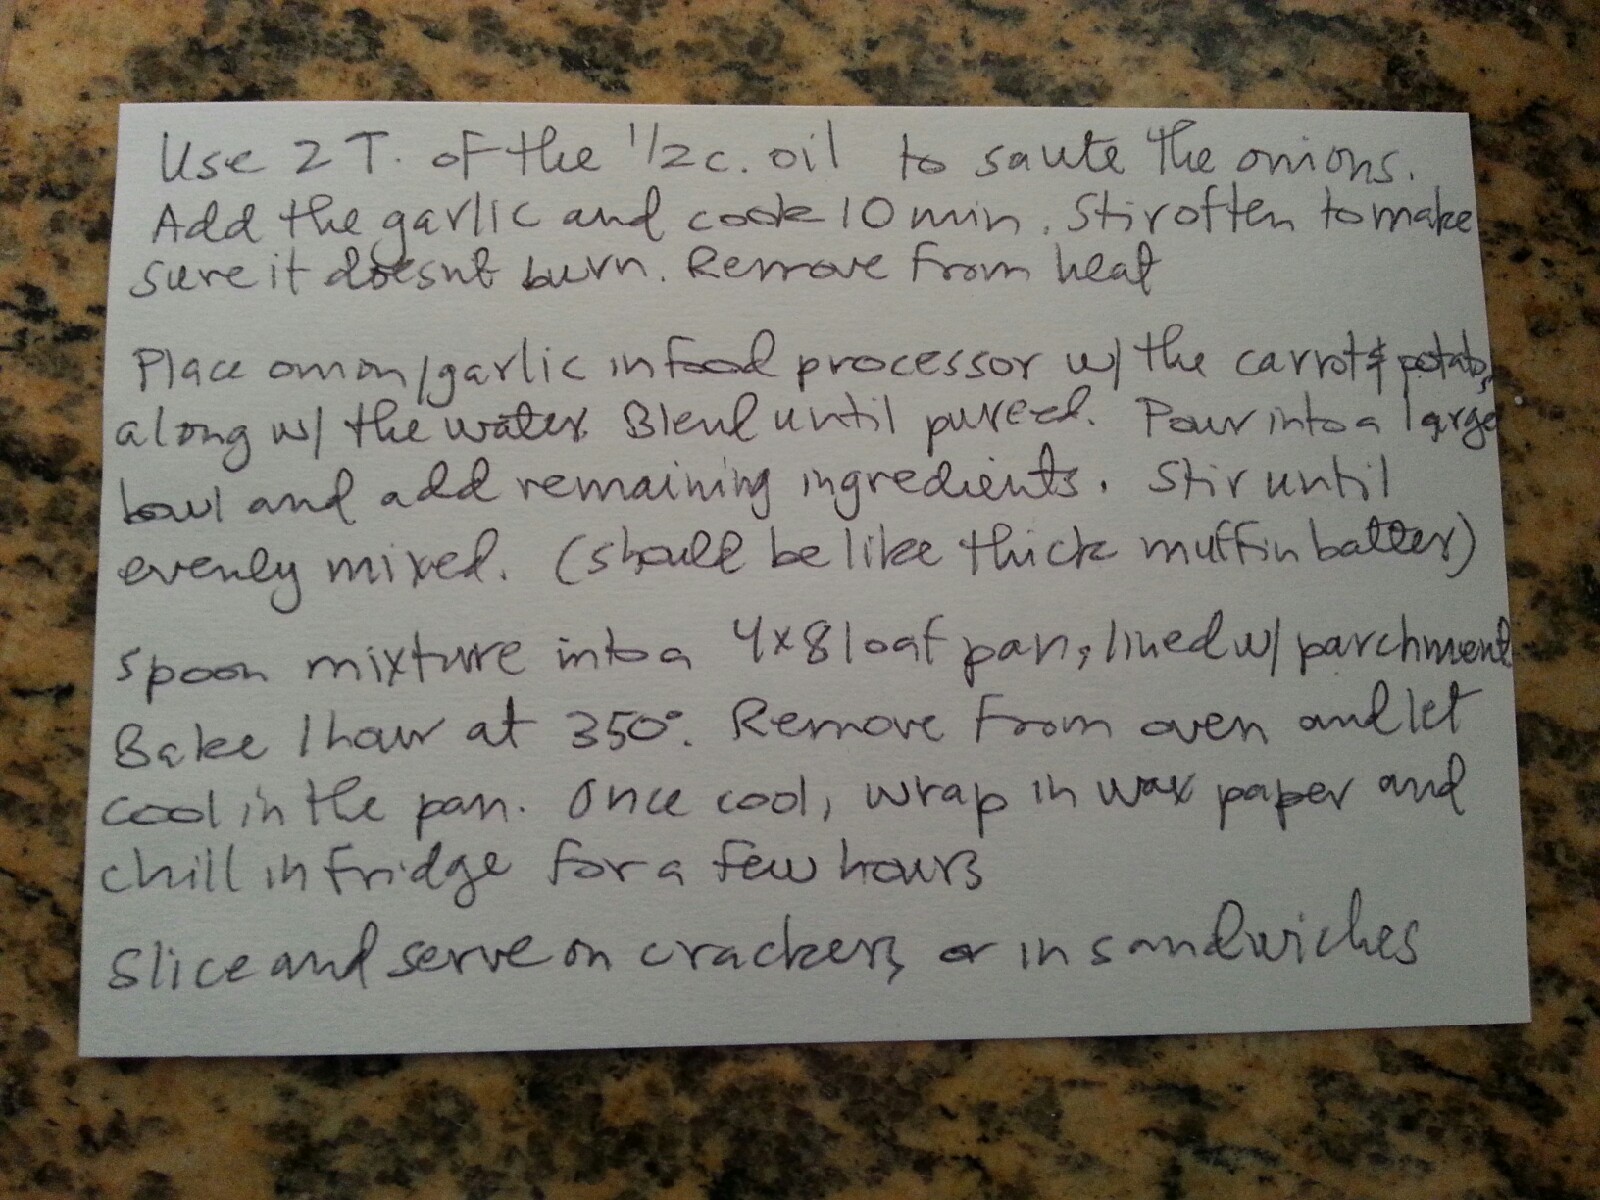 Use 2 T. of the 1/2 c. oil to saute the onions.
Add the garlic and cook 10 min. Stir often to make
sure it doesnt burn. Remove from heat
Place onion/garlic in food processor w/ the carrot & potato,
along w/ the water. Blend until pureed. Pour into a large
bowl and add remaining ingredients. Stir until
evenly mixed. (should be like thick muffin batter)
Spoon mixture into a 4x8 loaf pan, lined w/ parchment
Bake 1 hour at 350°. Remove from oven and let
cool in the pan. Once cool, wrap in wax paper and
chill in fridge for a few hours
Slice and serve on crackers, or in sandwiches